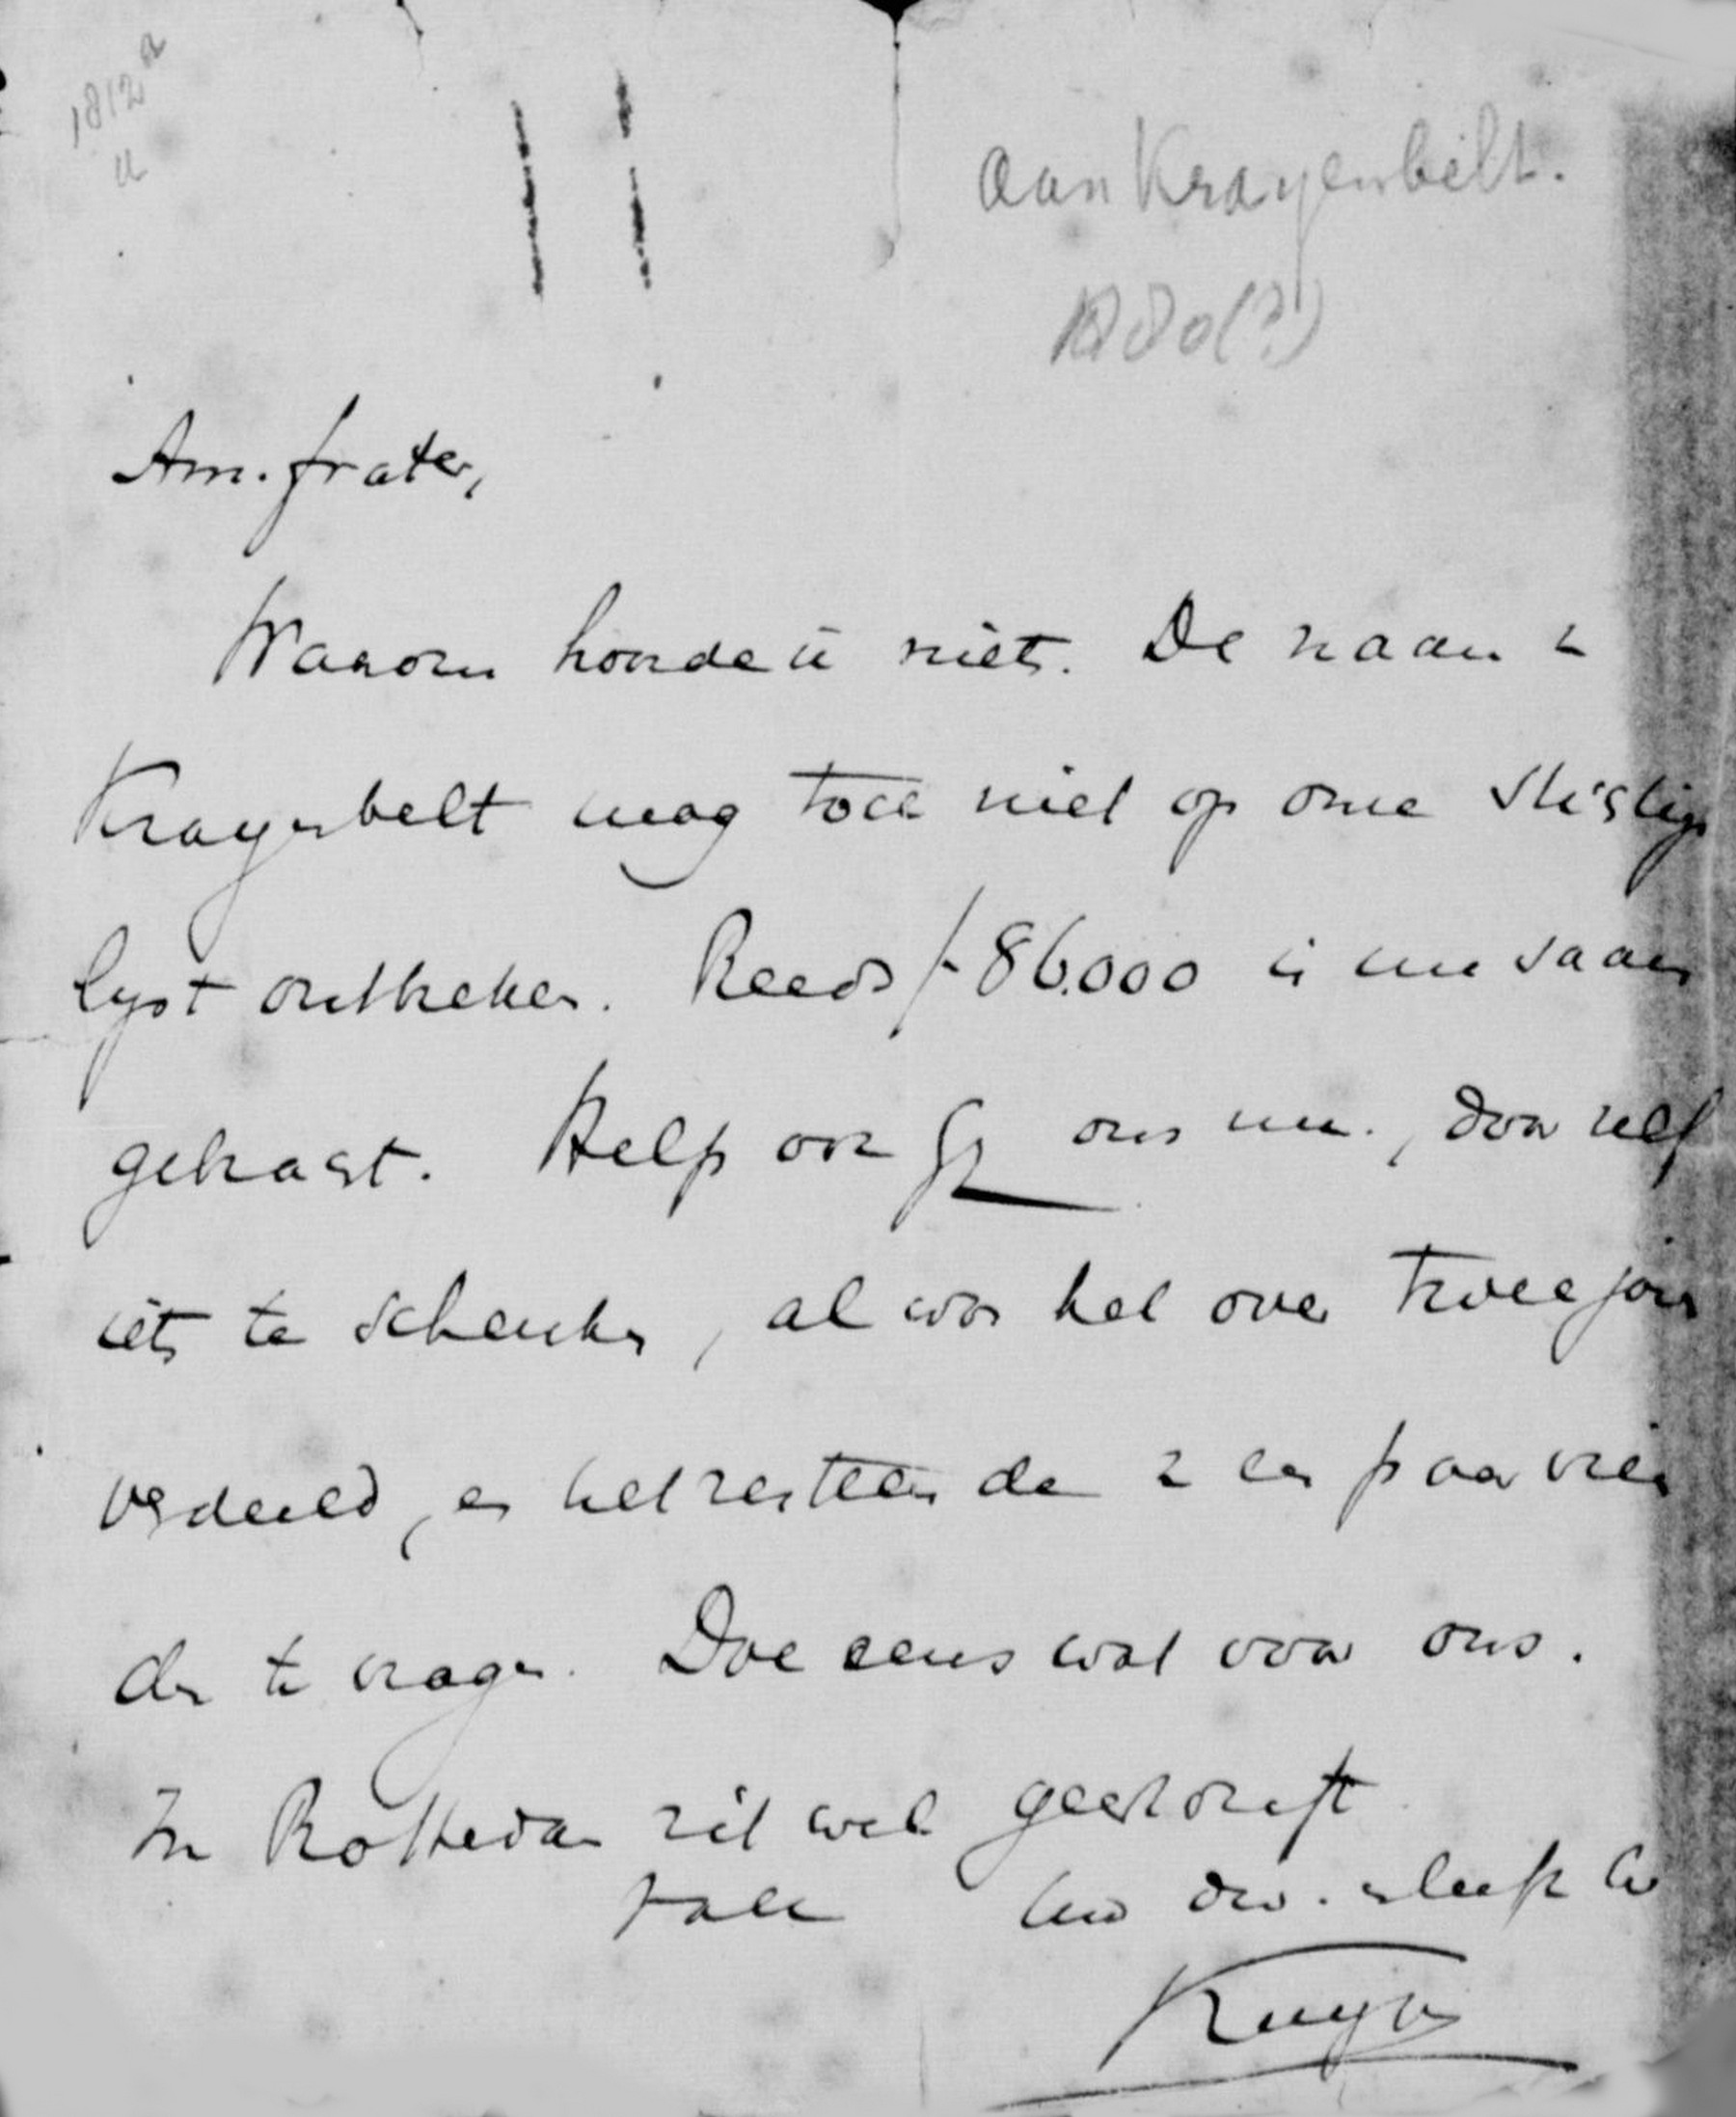 1812a
Aan Krayenbelt.
1880(?)
Am. frater,
Waarom hoorde ik niets. De naam v
Krayenbelt mag toch niet op onze Stigtings
lyst ontbreken. Reeds f 86.000 is nu saam
gebragt. Help ook Gy ons nu, door zelf
iets te schenken, al was het over twee jaar
verdeeld, en het resteerende v een paar vrien
den te vragen. Doe eens wat voor ons.
In Rotterdam zit wel geestdrift
t. t. Uw dw.
Kuyper